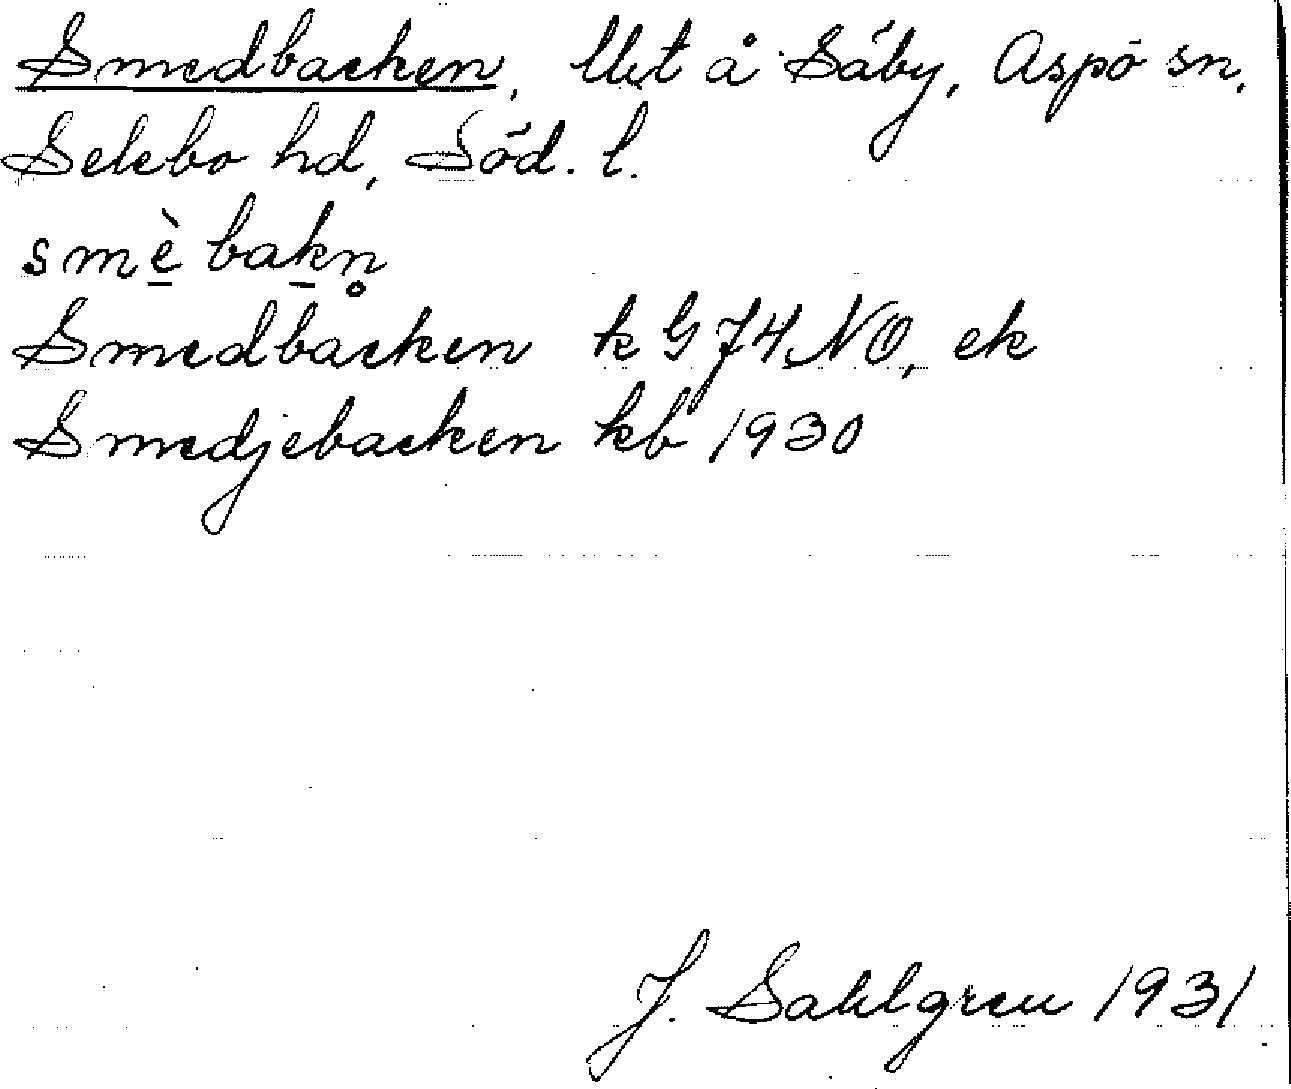 Smedbacken, lht å Säby, Aspö sn,
Selebo hd, Söd. l.
smè̱ baḵn̥
Smedbacken k G 74 NO, ek
Smedjebacken kb 1930
J. Sahlgren 1931